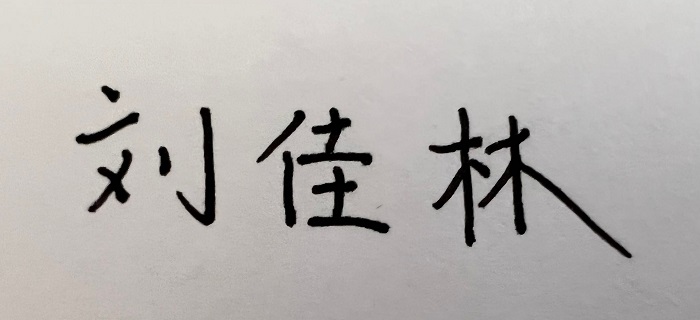 刘佳林